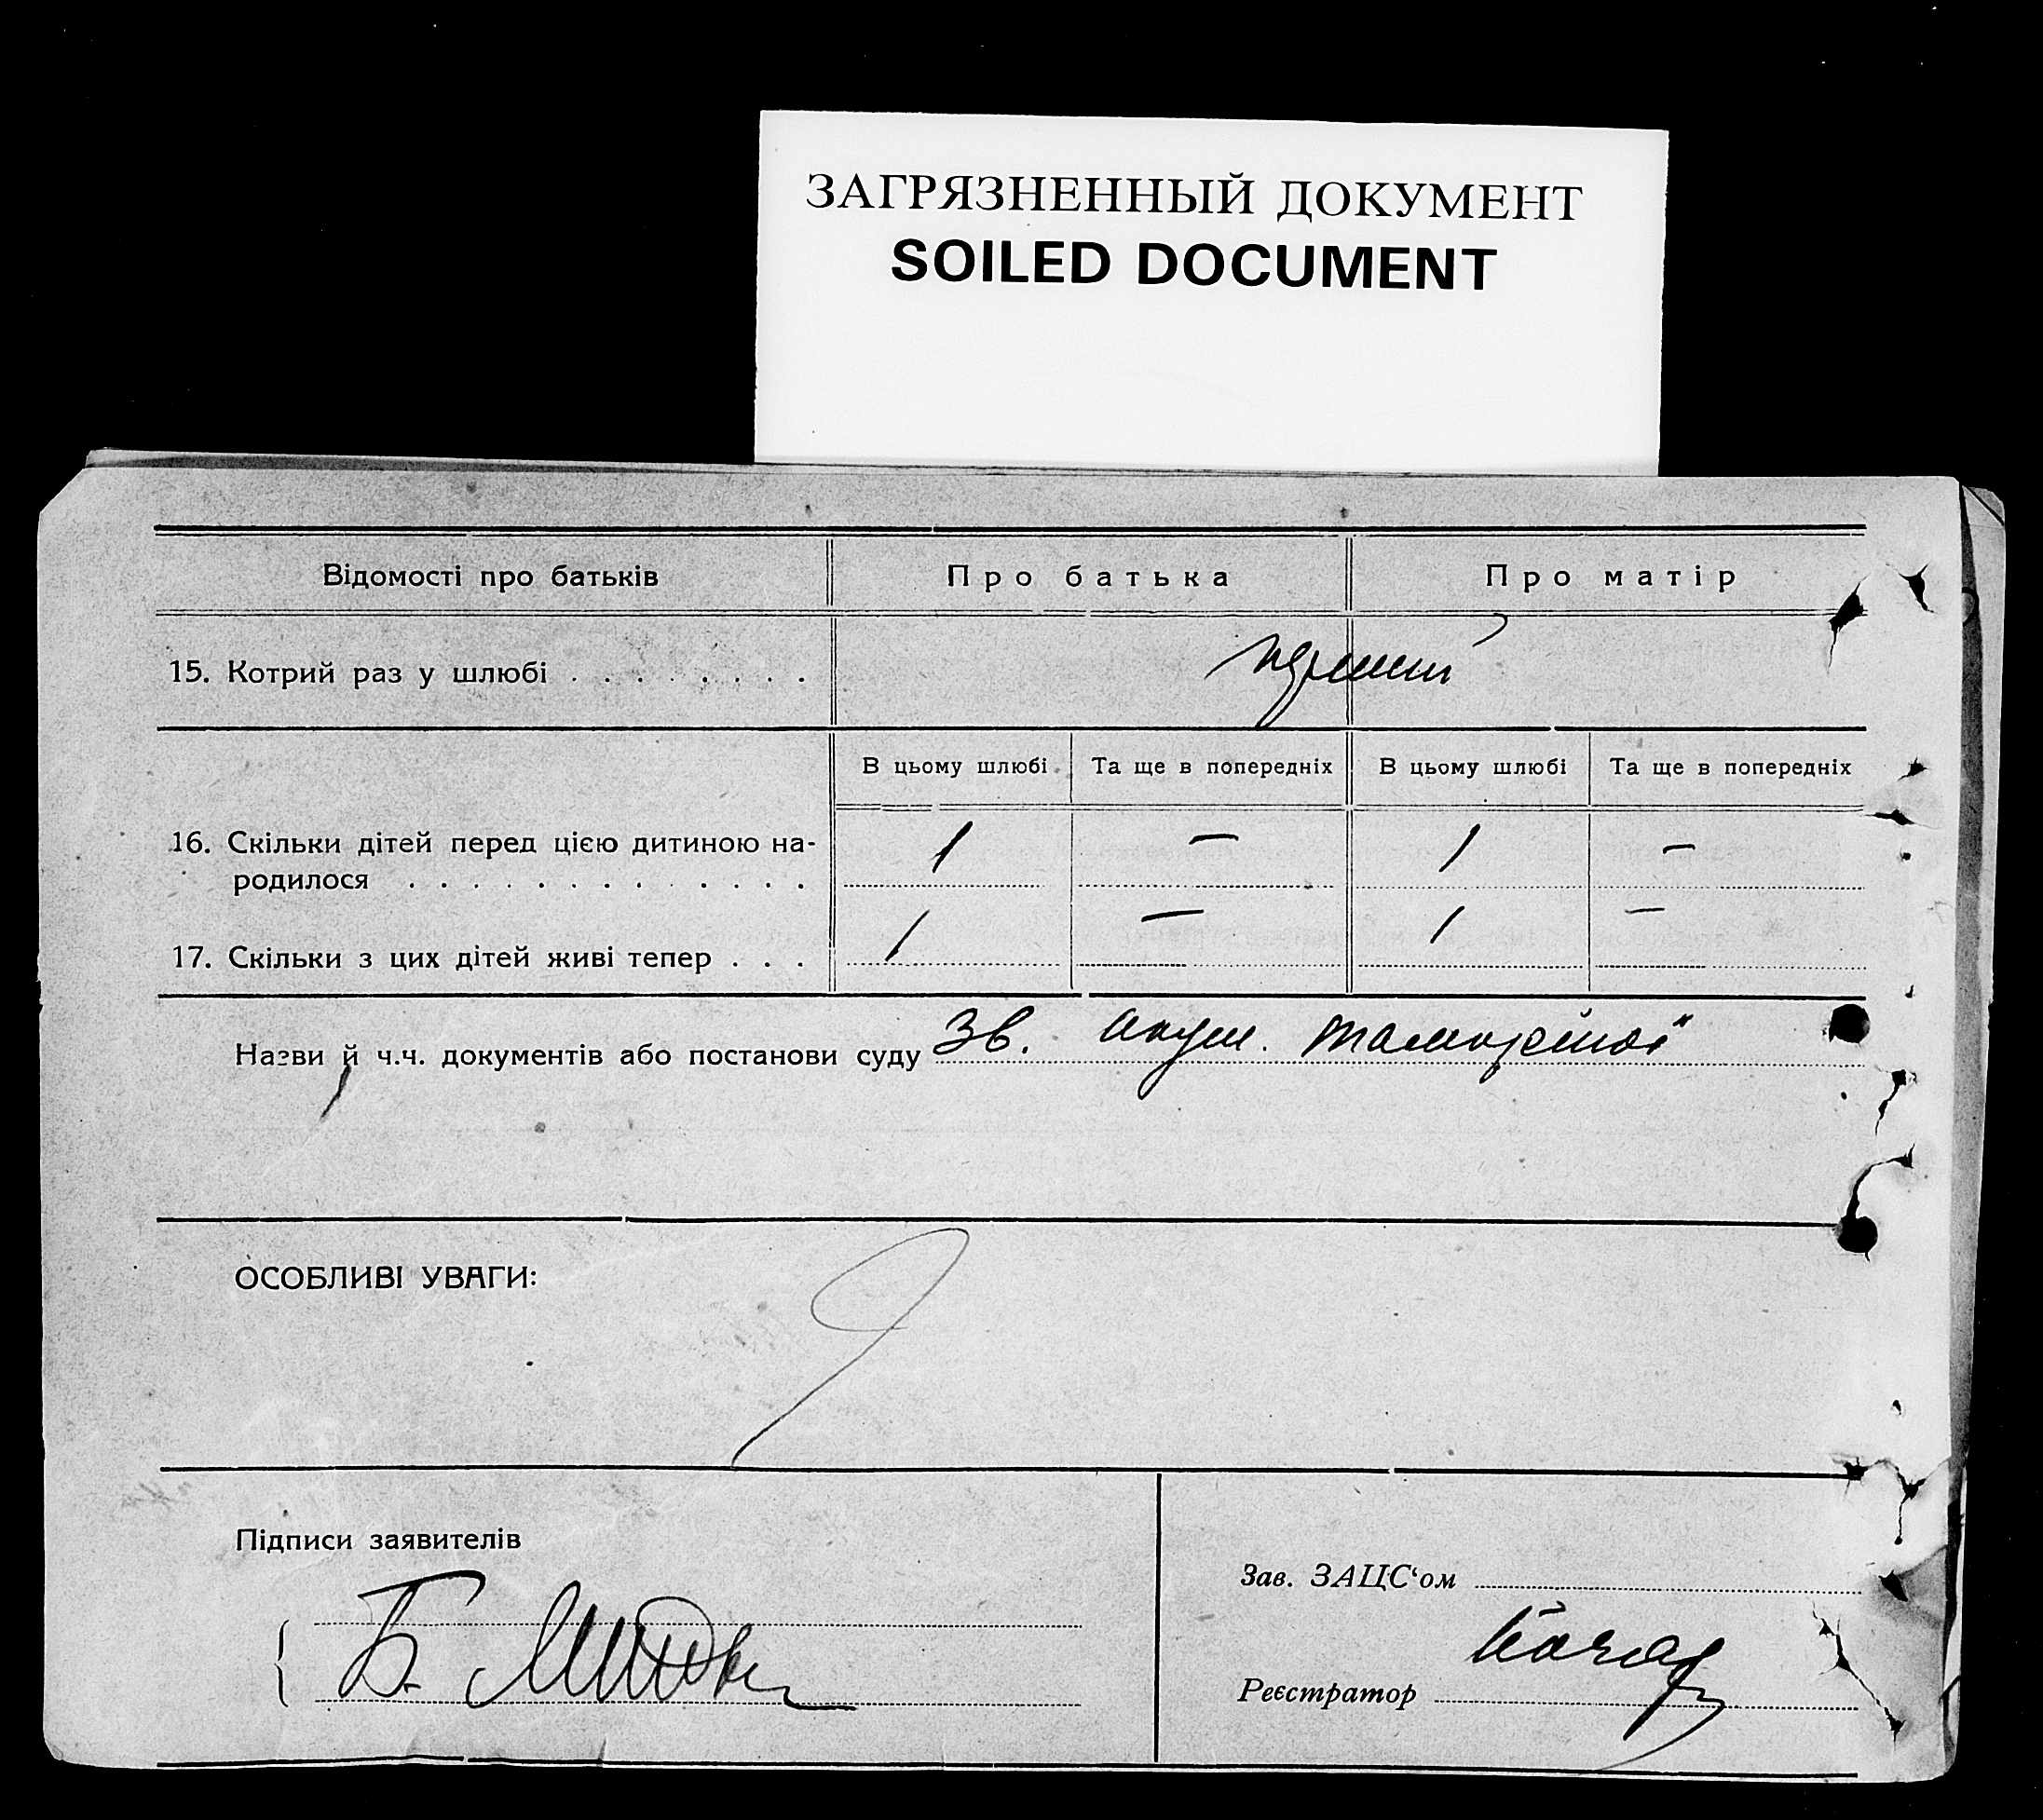 ЗАГРЯЗНЕННЫЙ ДОКУМЕНТ
SOILED DOCUMENT
Відомості про батьків Про батька Про матір
15. Котрий раз у шлюбі . . . . . . . .
В цьому шлюбі Та ще в попередніх В цьому шлюбі Та ще в попередніх
16. Скільки дітей перед цією дитиною на- 1 — 1 —
родилося . . . . . . . . . . . . .
17. Скільки з цих дітей живі тепер . . . 1 — 1 —
Назви й ч.ч. документів або постанови суду Зв. акуш.
ОСОБЛИВІ УВАГИ:
Підписи заявителів
Зав. ЗАЦС‘ом
Б.
Реєстратор